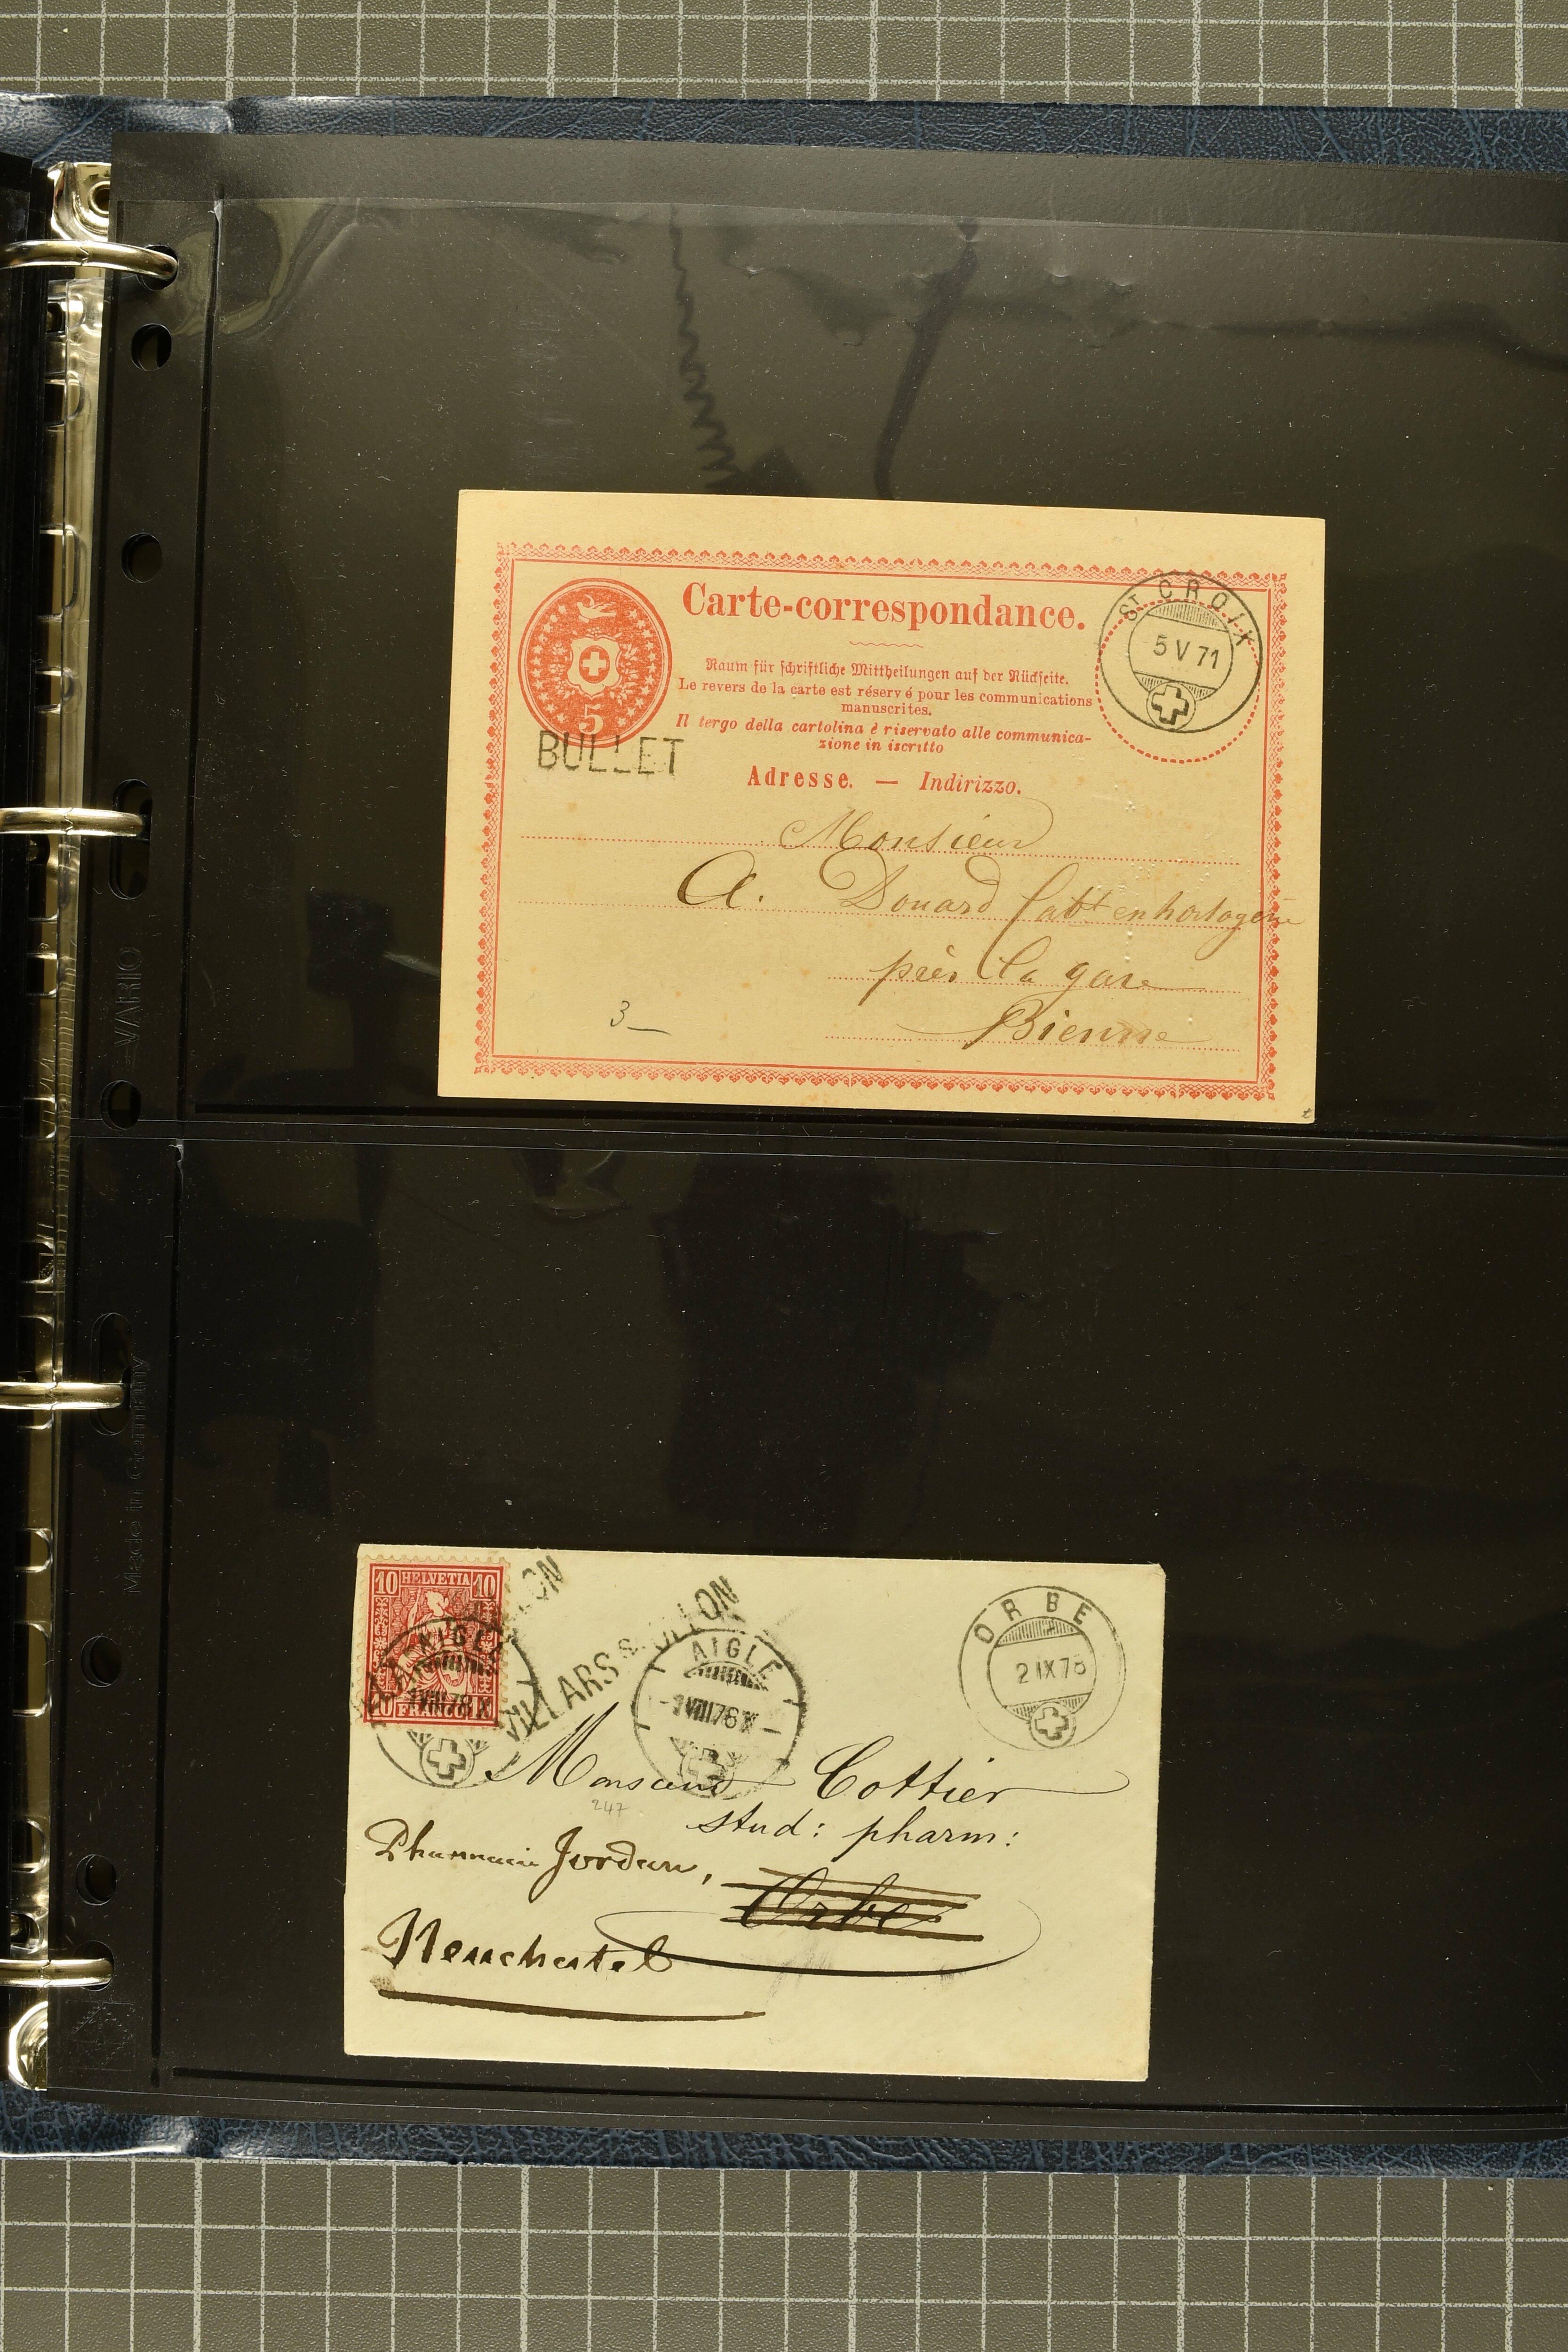 Carte-correspondance.
Raum für schriftliche Mittheilungen auf der Rückseite.
Le revers de la carte est réservé pour les communications
manuscrites.
Il tergo della cartolina è riservato alle communica-
zione in iscritto
5
BULLET
ST CROIX
5 V 71
Adresse. — Indirizzo.
Monsieur
A. Douard fabt en horlogerie
près la gare
Bienne
3—
VARIO
Made in Germany
10 HELVETIA 10
10 FRANCO
AIGLE
VIII 78 X
VILLARS s. OLLON
AIGLE
VIII 78 X
ORBE
2 IX 78
Monsieur Cottier
247
stud: pharm:
Pharmacie Jordan,
Orbe
Neuchatel